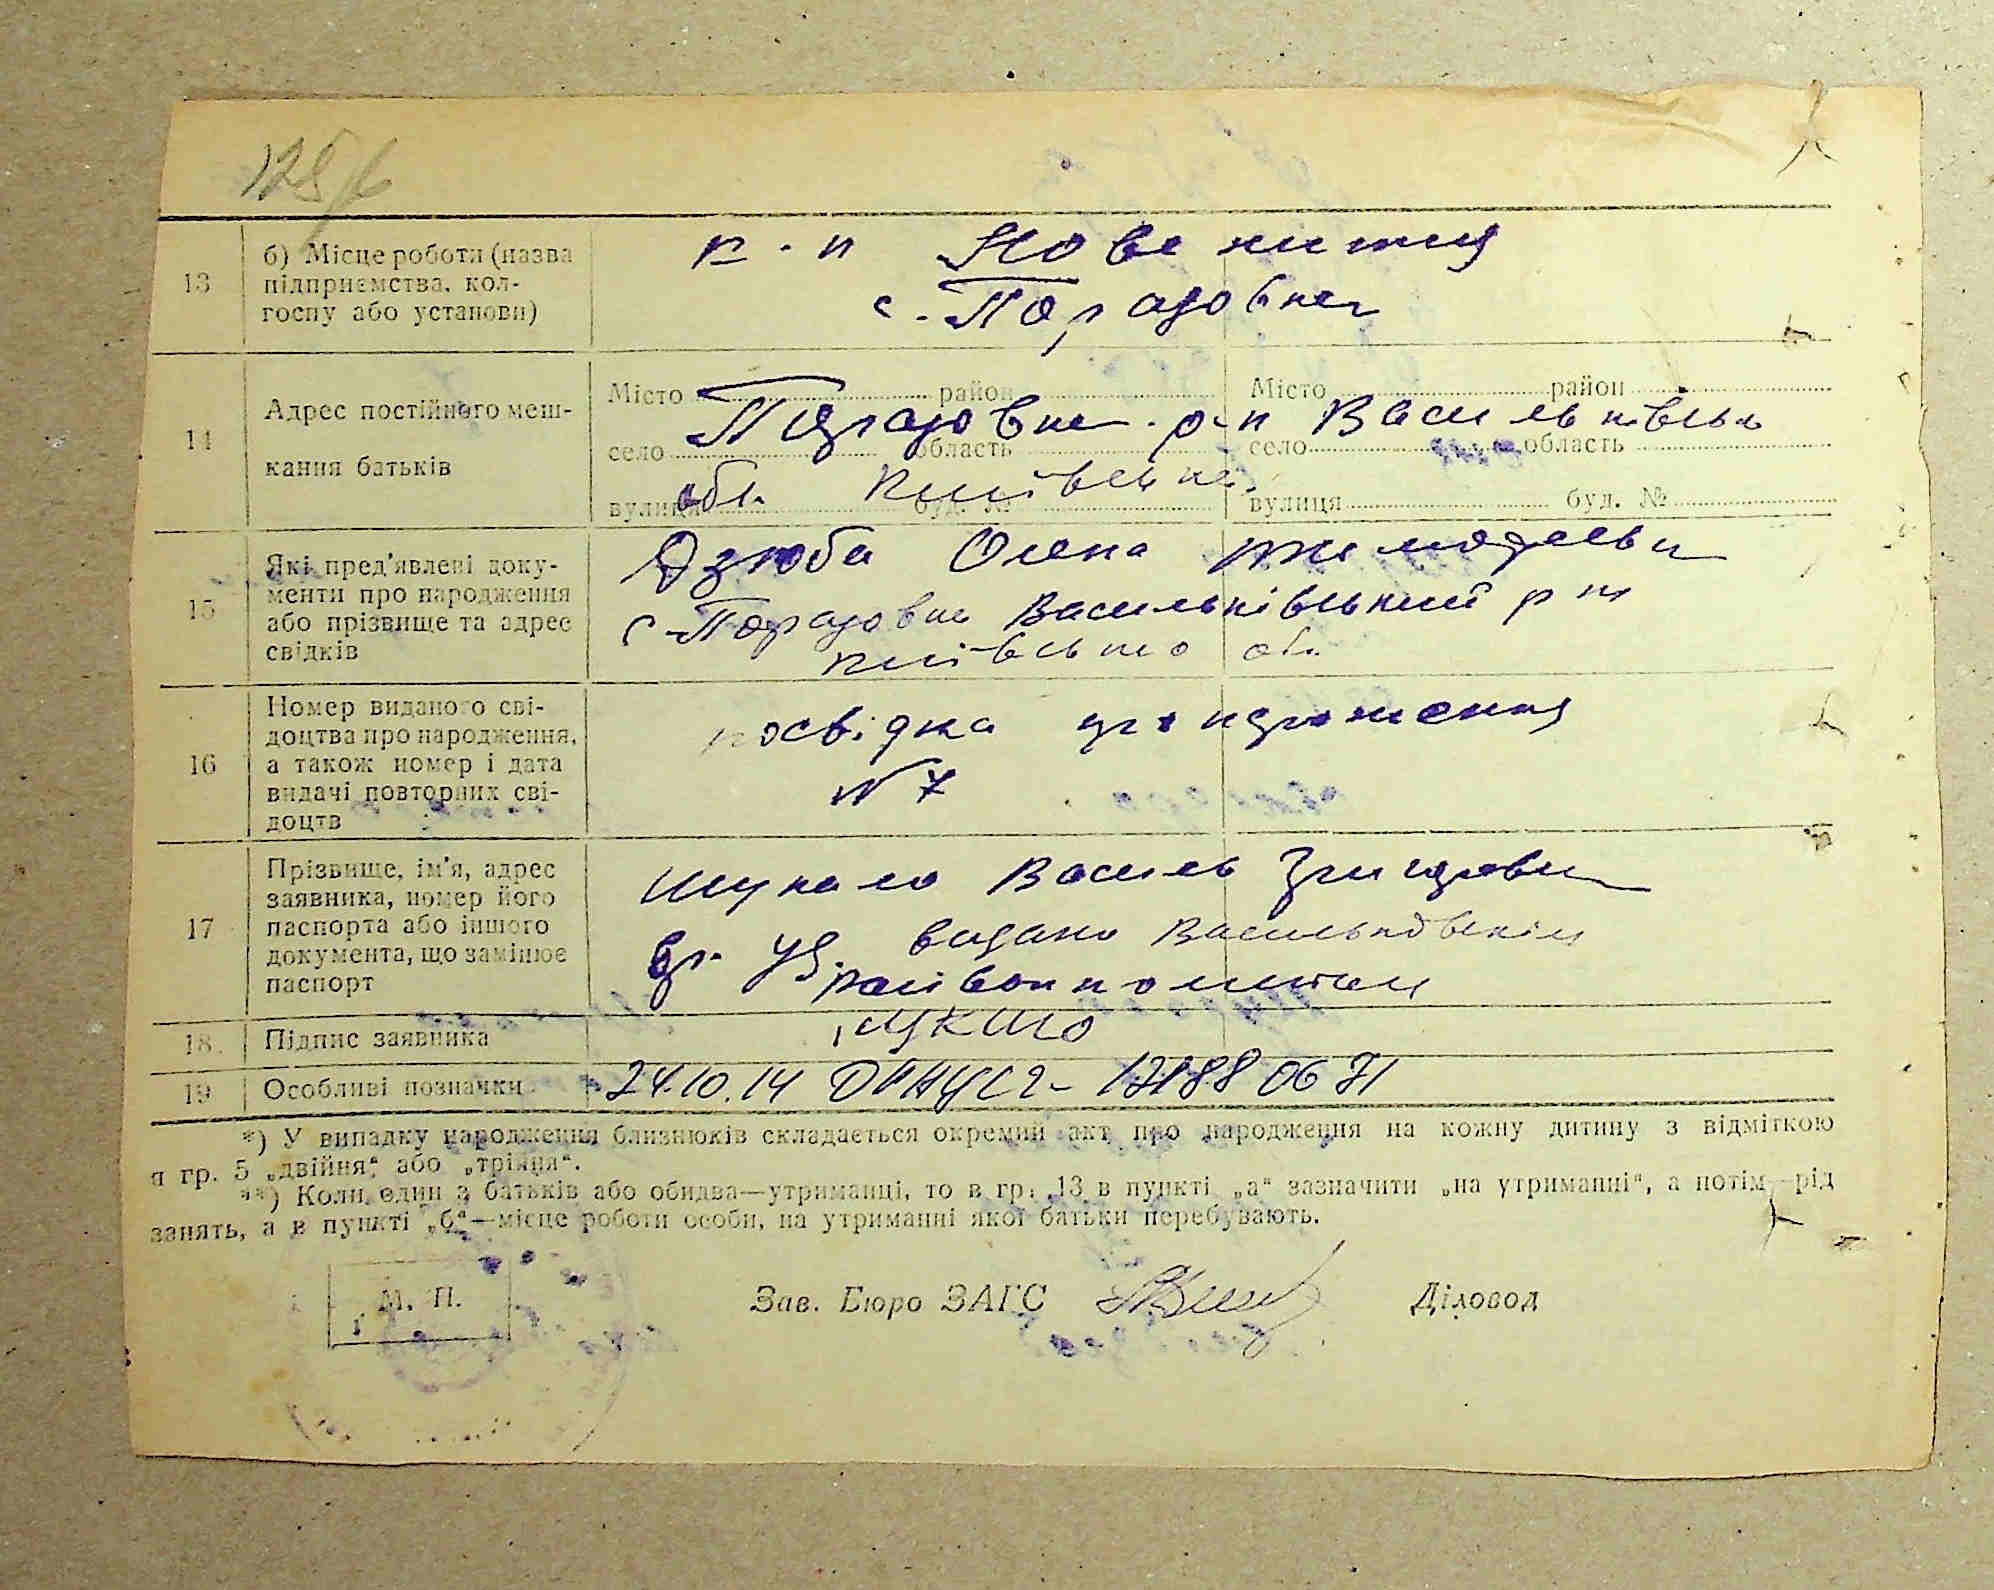 13
б) Місце роботи (назва підприємства, колгоспу або установи)
к-п Нове життя
с. Порадовка
14
Адрес постійного мешкання батьків
Місто район Місто район
Порадовка р-н Васильківськ
село область село область
обл. Київська
вулиця буд. № вулиця буд. №
15
Які пред'явлені документи про народження або прізвище та адрес свідків
Дзюба Олена
с. Порадовка Васильківський р-н
Київсько обл.
16
Номер виданого свідоцтва про народження, а також номер і дата видачі повторних свідоцтв
посвідка
N 7
17
Прізвище, ім'я, адрес заявника, номер його паспорта або іншого документа, що замінює паспорт
Шукало Василь Григорович
видано Васильківським
райвонкоматом
18.
Підпис заявника
19
Особливі позначки
24.10.14
*) У випадку народження близнюків складається окремий акт про народження на кожну дитину з відміткою
я гр. 5 „двійня“ або „трійня“.
**) Коли один з батьків або обидва—утриманці, то в гр. 13 в пункті „а“ зазначити „на утриманні“, а потім рід
занять, а в пункті „б“—місце роботи особи, на утриманні якої батьки перебувають.
М. П.
Зав. Бюро ЗАГС Діловод